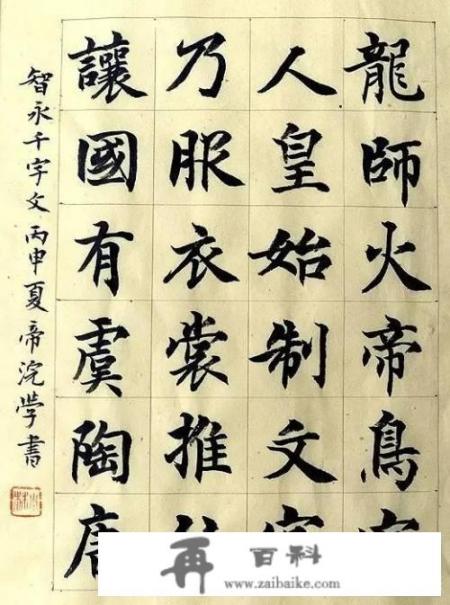 龍師火帝鳥
人皇始制文
乃服衣裳推
讓國有虞陶唐
智永千字文 丙申夏帝浣學書
再百科
www.zaibaike.com